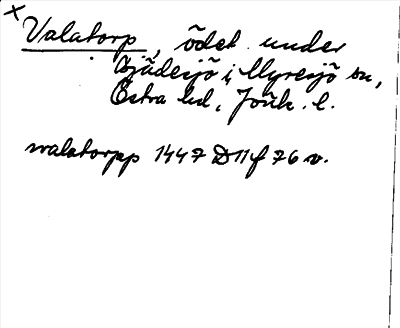 x
Valatorp, ödet under
Bjädesjö i Myresjö sn,
Östra hd, Jönk. l.
walatorpp 1447 D11 f 76 v.